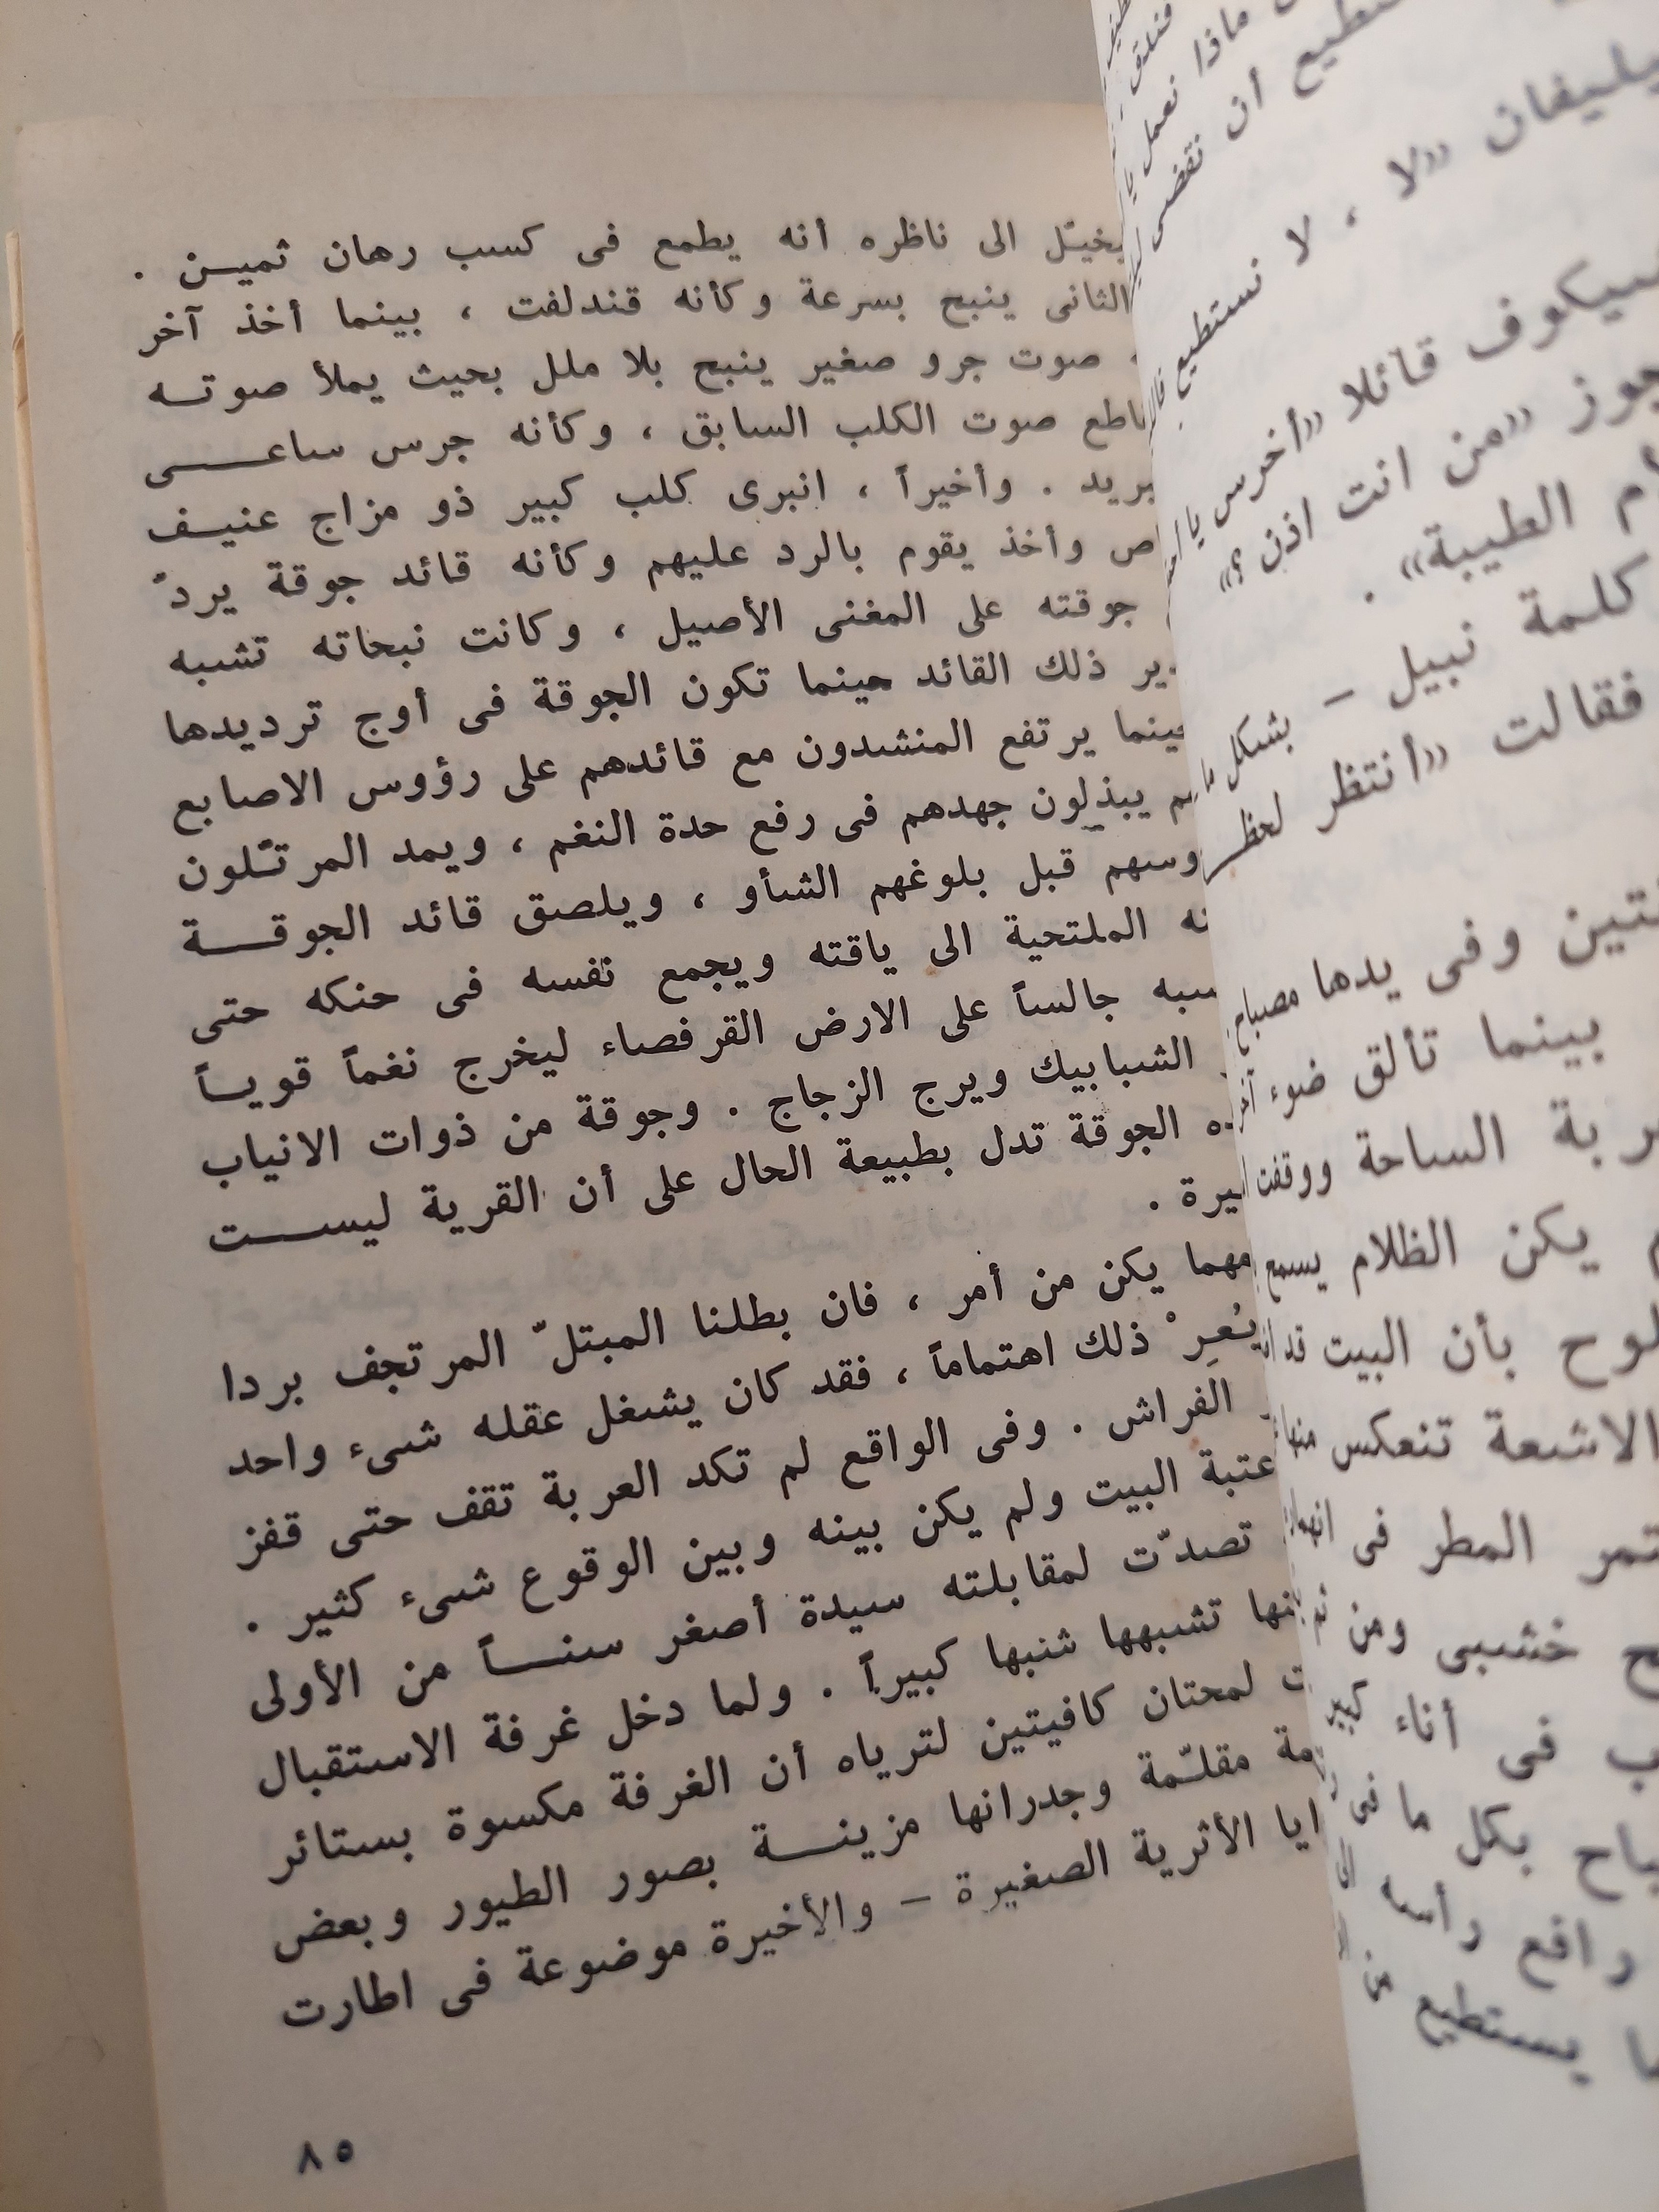 يخيّل الى ناظره أنه يطمع فى كسب رهان ثميـن .
الثانى ينبح بسرعة وكأنه قندلفت ، بينما أخذ آخر
صوت جرو صغير ينبح بلا ملل بحيث يملأ صوتـه
صوت الكلب السابق ، وكأنه جرس ساعـــى
بريد . وأخيراً ، انبرى كلب كبير ذو مزاج عنيـف
وأخذ يقوم بالرد عليهم وكأنه قائد جوقة يردّ
جوقته على المغنى الأصيل ، وكانت نبحاته تشبه
ذلك القائد حينما تكون الجوقة فى أوج ترديدها
حينما يرتفع المنشدون مع قائدهم على رؤوس الاصابع
يبذلون جهدهم فى رفع حدة النغم ، ويمد المرتّلون
قبل بلوغهم الشأو ، ويلصق قائد الجوقـــة
الملتحية الى ياقته ويجمع نفسه فى حنكه حتى
جالساً على الارض القرفصاء ليخرج نغماً قويـاً
الشبابيك ويرج الزجاج . وجوقة من ذوات الانياب
الجوقة تدل بطبيعة الحال على أن القرية ليســـت
.
مهما يكن من أمر ، فان بطلنا المبتلّ المرتجف بردا
يُعِرْ ذلك اهتماماً ، فقد كان يشغل عقله شىء واحد
الفراش . وفى الواقع لم تكد العربة تقف حتى قفز
عتبة البيت ولم يكن بينه وبين الوقوع شىء كثير .
تصدّت لمقابلته سيدة أصغر سنـــاً من الأولى
تشبهها شنبها كبيراً . ولما دخل غرفة الاستقبال
لمحتان كافيتين لترياه أن الغرفة مكسوة بستائر
مقلّمة وجدرانها مزينـــة بصور الطيور وبعض
الأثرية الصغيرة – والأخيرة موضوعة فى اطارت
٨٥
ماذا نعمل
أن نقضى
«لا ، لا نستطيع
قائلا «أخرس يا
«من انت اذن ؟»
الطيبة» .
كلمة نبيل – بشكل
فقالت «أنتظر
وفى يدها مصباح
بينما تألق ضوء
الساحة ووقفت
يكن الظلام يسمع
بأن البيت
الاشعة تنعكس منها
المطر فى
خشبى ومن
فى أناء كبير
بكل ما فى
رافع رأسه
يستطيع من